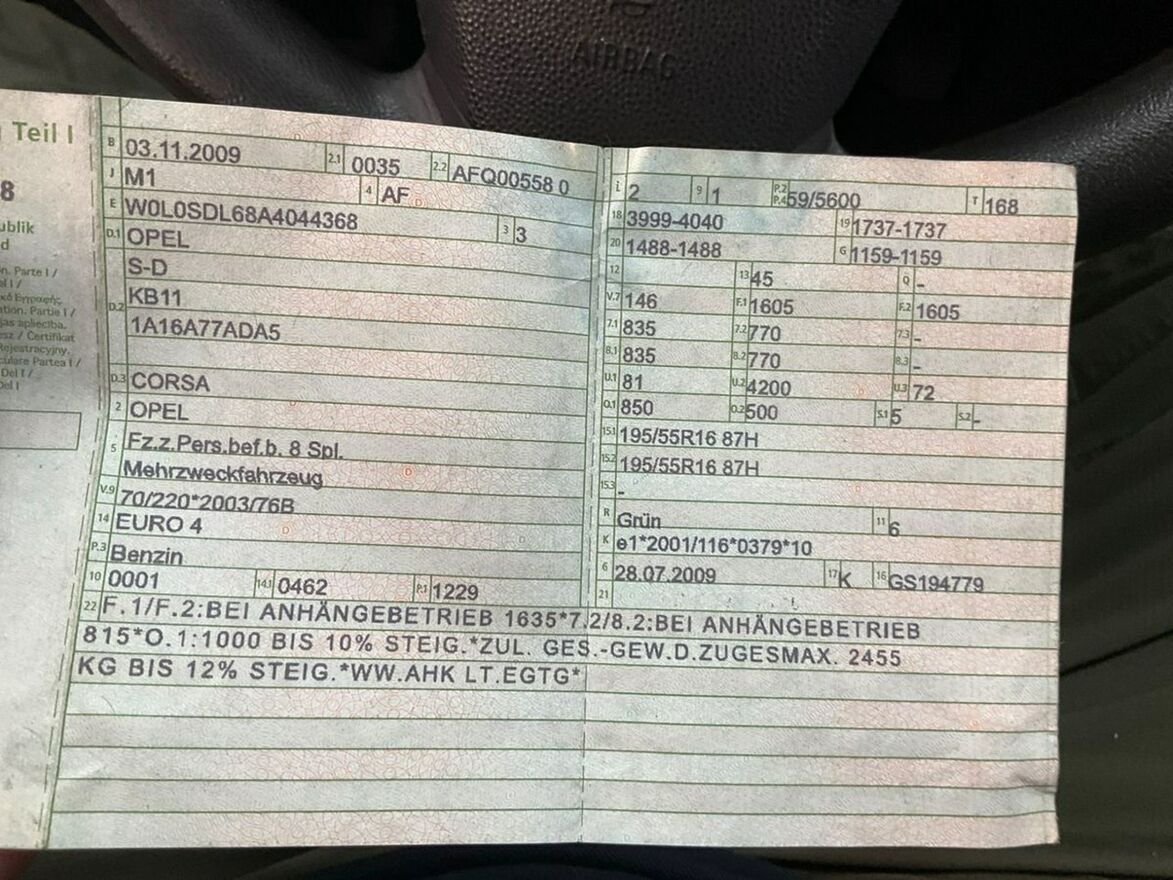 AIRBAG
Teil I
8
ublik
d
n. Parte I /
l I /
κό Εγγραφής
ation. Partie I /
jas apliecība.
sz / Certifikat
Rejestracyjny.
culare Partea I /
Del I /
Del I
B 03.11.2009 2.1 0035 2.2 AFQ00558 0
J M1 4 AF
E W0L0SDL68A4044368 3 3
D.1 OPEL
D.2 S-D
KB11
1A16A77ADA5
D.3 CORSA
2 OPEL
5 Fz.z.Pers.bef.b. 8 Spl.
Mehrzweckfahrzeug
V.9 70/220*2003/76B
14 EURO 4
P.3 Benzin
10 0001 14.1 0462 P.1 1229
L 2 9 1 P.2 P.4 59/5600 T 168
18 3999-4040 19 1737-1737
20 1488-1488 G 1159-1159
12 13 45 Q -
V.7 146 F.1 1605 F.2 1605
7.1 835 7.2 770 7.3 -
8.1 835 8.2 770 8.3 -
U.1 81 U.2 4200 U.3 72
O.1 850 O.2 500 S.1 5 S.2 -
15.1 195/55R16 87H
15.2 195/55R16 87H
15.3 -
R Grün 11 6
K e1*2001/116*0379*10
6 28.07.2009 17 K 16 GS194779
21
22 F.1/F.2:BEI ANHÄNGEBETRIEB 1635*7.2/8.2:BEI ANHÄNGEBETRIEB
815*O.1:1000 BIS 10% STEIG.*ZUL. GES.-GEW.D.ZUGESMAX. 2455
KG BIS 12% STEIG.*WW.AHK LT.EGTG*